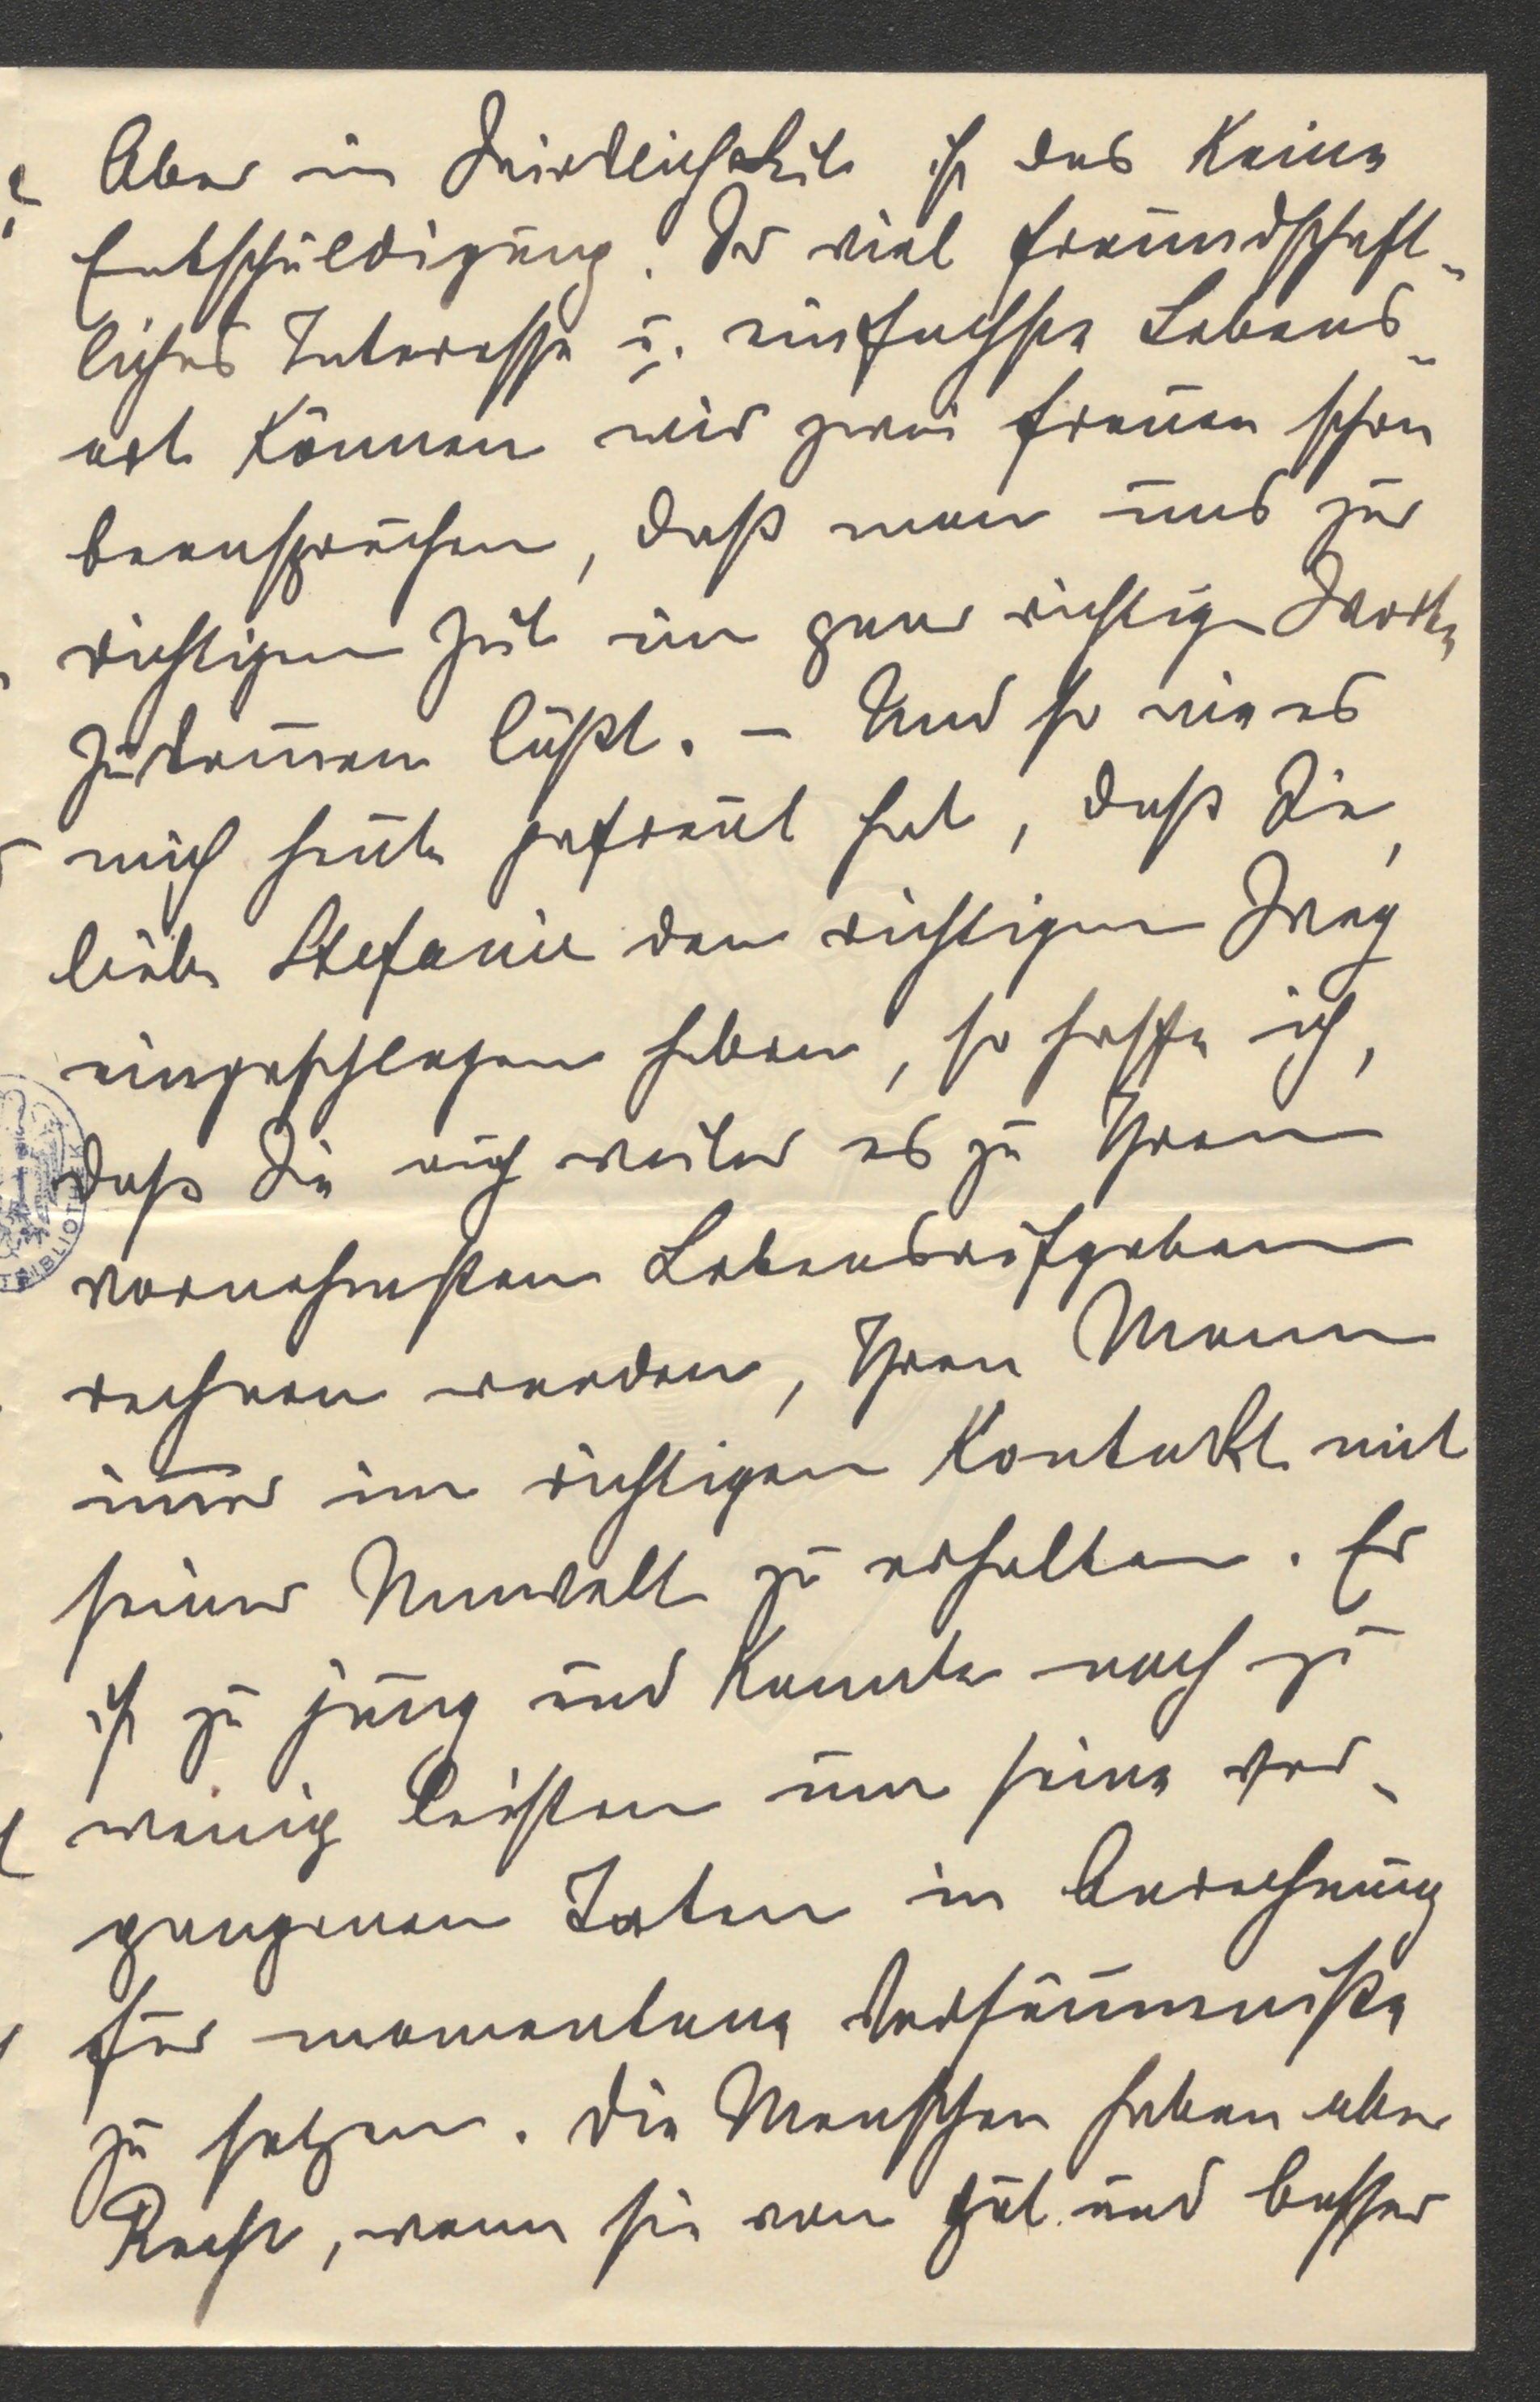 Aber in Wirklichkeit ist das keine
Entschuldigung. So viel freundschaft-
liches Interesse u. einfachste Lebens-
art können wir zwei Frauen schon
beanspruchen, daß man uns zur
richtigen Zeit ein paar richtige Worte
zukommen läßt. – Und so wie es
mich heute gefreut hat, daß Sie,
liebe Stefanie den richtigen Weg
eingeschlagen haben, so hoffe ich,
daß Sie auch weiter es zu Ihren
vornehmsten Lebensaufgaben
rechnen werden, Ihren Mann
immer im richtigen Kontakt mit
seiner Umwelt zu erhalten. Er
ist zu jung und konnte noch zu
wenig leisten um seine ver-
gangenen Taten in Anrechnung
für momentane Versäumnisse
zu setzen. Die Menschen haben aber
Recht, wenn sie von gut und besser